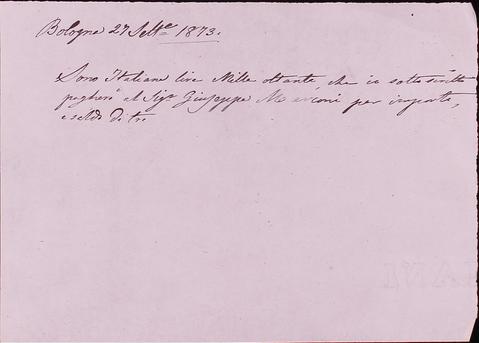 Bologna 27 Sette 1873.
Sono Italiane lire Mille ottanta che io sottoscritto
pagherò al Sigr Giuseppe per importo,
e saldo di tre